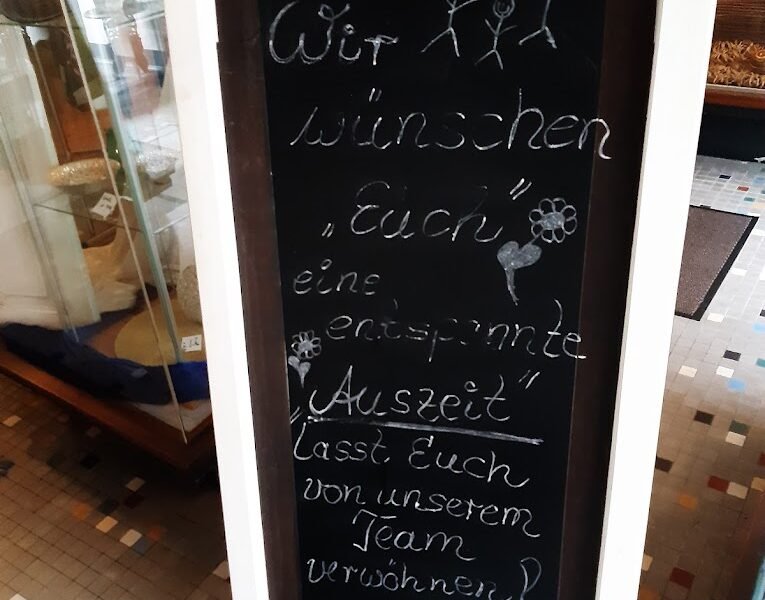 Wir
wünschen
„Euch"
eine
entspannte
„Auszeit"
lasst Euch
von unserem
Team
verwöhnen!